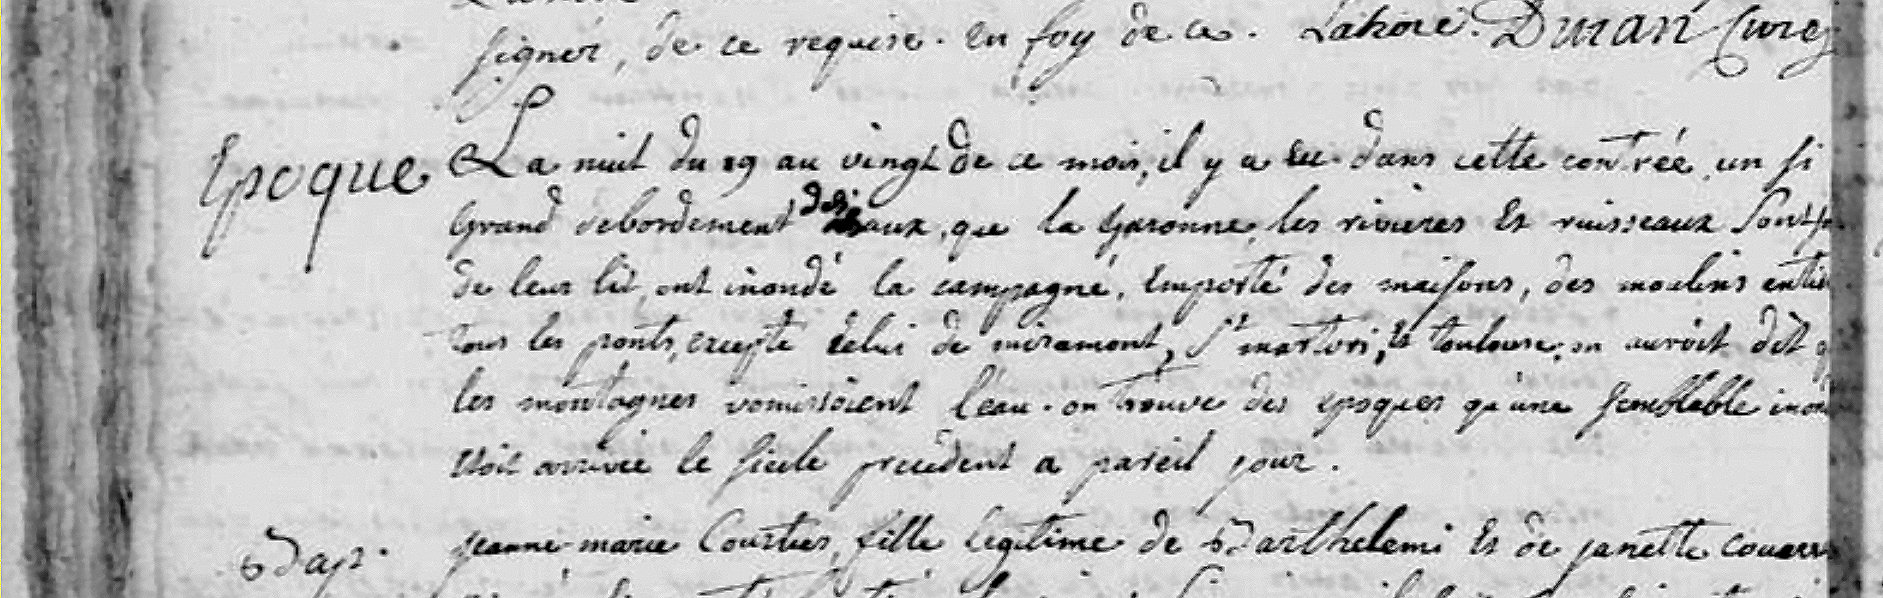 signer, de ce requise. En foy de ce. Lahore. Duran Curé
Epoque
La nuit du 19 au vingt de ce mois, il y a eu dans cette contrée un si
Grand debordement des eaux, que la Garonne, les rivieres Et ruisseaux Sont
de leur lit, ont inondé la campagne, Emporté des maisons, des moulins entie
tous les ponts, excepte Celui de miramont, St martori, et toulouse, on auroit dit q
les montagnes vomissoient l'eau. on trouve des epoques qu'une semblable inon
Etoit arrivée le siecle precedent a pareil jour.
Bap.
jeanne-marie Courties, fille legitime de Barthelemi Et de janette